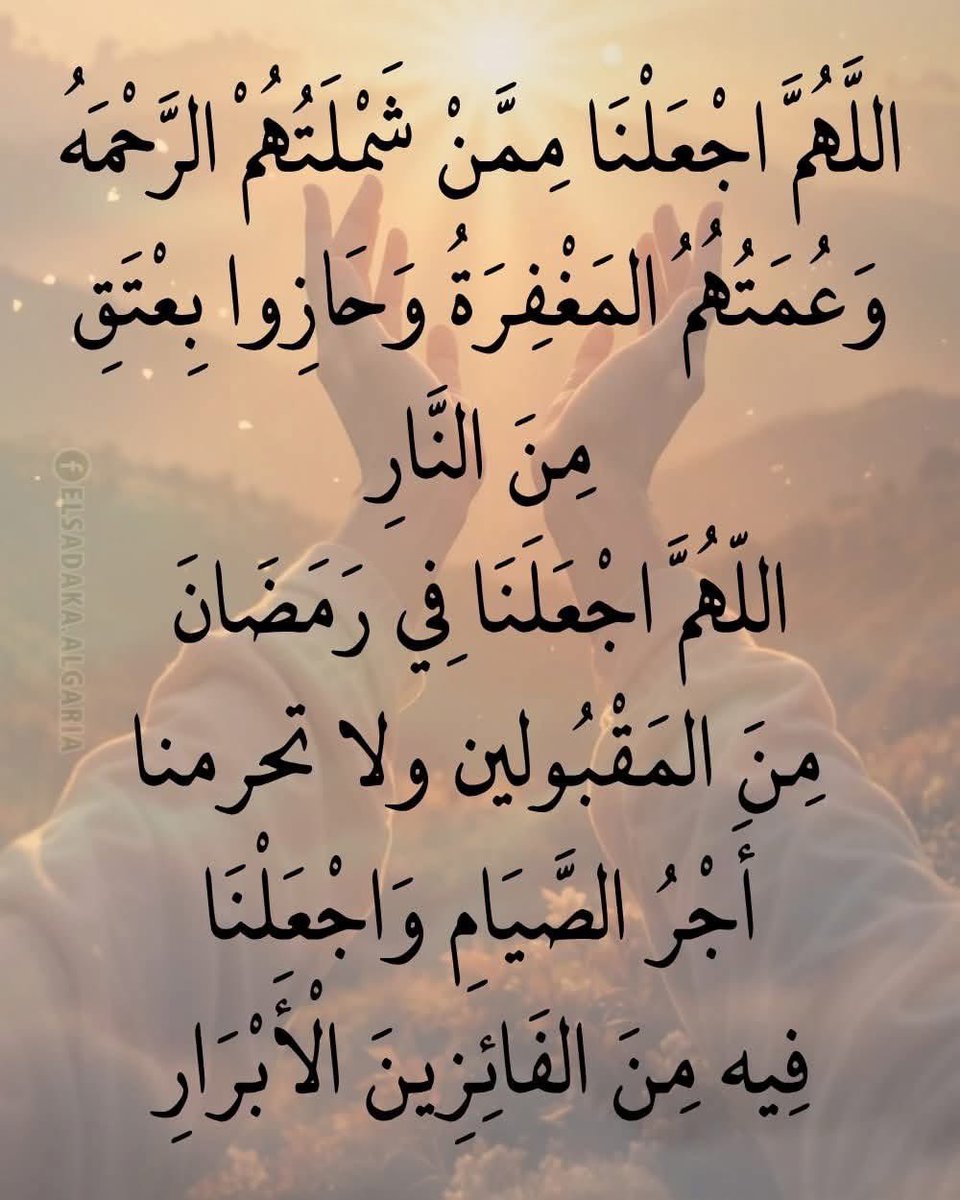 اللَّهُمَّ اجْعَلْنَا مِمَّنْ شَمْلَتُهُمْ الرَّحْمَهُ
وَعُمَتُهُمُ المَغْفِرَةُ وَحَازِوا بِعْتَقِ
مِنَ النَّارِ
اللّهُمَّ اجْعَلَنَا فِي رَمَضَانَ
مِنَ المَقْبُولين ولا تحرمنا
أَجْرُ الصَّيَامِ وَاجْعَلْنَا
فِيه مِنَ الفَائِزِينَ الْأَبْرَارِ
ELSADAKA.ALGARIA